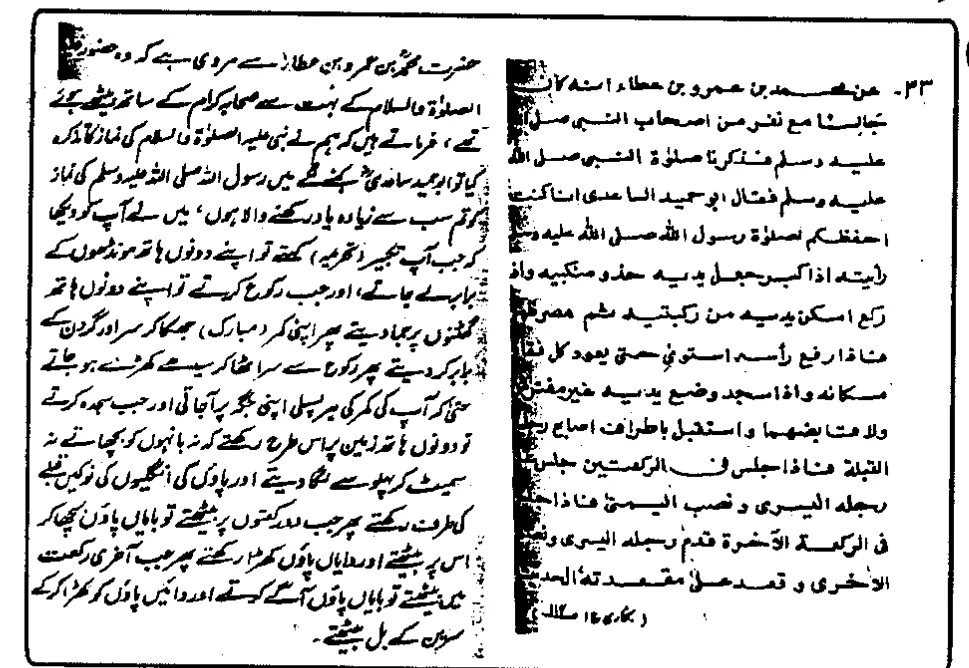 ۳۳۔ عن محمد بن عمرو بن عطاء انه كان
جالسا مع نفر من اصحاب النبى صلى
عليه وسلم فذكرنا صلوٰة النبى صلى الله
عليه وسلم فقال ابو حميد الساعدى انا كنت
احفظكم لصلوٰة رسول الله صلى الله عليه
رأيته اذا كبر جعل يديه حذو منكبيه واذا
ركع امكن يديه من ركبتيه ثم هصر
فاذا رفع رأسه استوىٰ حتى يعود كل
مكانه واذا سجد وضع يديه غير
ولا قابضهما واستقبل باطراف اصابع
القبلة فاذا جلس فى الركعتين جلس
رجله اليسرى و نصب اليمنى فاذا
فى الركعة الآخرة قدم رجله اليسرى
الاخرى و قعد على مقعدته
حضرت محمد بن عمرو بن عطاء سے مروی ہے کہ وہ حضور
الصلوٰۃ والسلام کے بہت سے صحابہ کرام کے ساتھ بیٹھے ہوئے
تھے، فرماتے ہیں کہ ہم نے نبی علیہ الصلوٰۃ والسلام کی نماز کا تذکرہ
کیا تو ابو حمید ساعدی کہنے لگے میں رسول اللہ صلی اللہ علیہ وسلم کی نماز
کو تم سب سے زیادہ یاد رکھنے والا ہوں، میں نے آپ کو دیکھا
کہ جب آپ تکبیر (تحریمہ) کہتے تو اپنے دونوں ہاتھ مونڈھوں کے
برابر لے جاتے، اور جب رکوع کرتے تو اپنے دونوں ہاتھ
گھٹنوں پر جما دیتے پھر اپنی کمر (مبارک) جھکا کر سر اور گردن کے
برابر کر دیتے پھر رکوع سے سر اٹھا کر سیدھے کھڑے ہو جاتے
حتیٰ کہ آپ کی کمر کی ہر پسلی اپنی جگہ پر آجاتی اور جب سجدہ کرتے
تو دونوں ہاتھ زمین پر اس طرح رکھتے کہ نہ بانہوں کو بچھاتے نہ
سمیٹ کر پہلو سے لگا دیتے اور پاؤں کی انگلیوں کی نوکیں قبلے
کی طرف رکھتے پھر جب دو رکعتوں پر بیٹھتے تو بایاں پاؤں بچھا کر
اس پر بیٹھتے اور دایاں پاؤں کھڑا رکھتے پھر جب آخری رکعت
میں بیٹھتے تو بایاں پاؤں آگے کرتے اور دائیں پاؤں کو کھڑا کر کے
سرین کے بل بیٹھتے۔